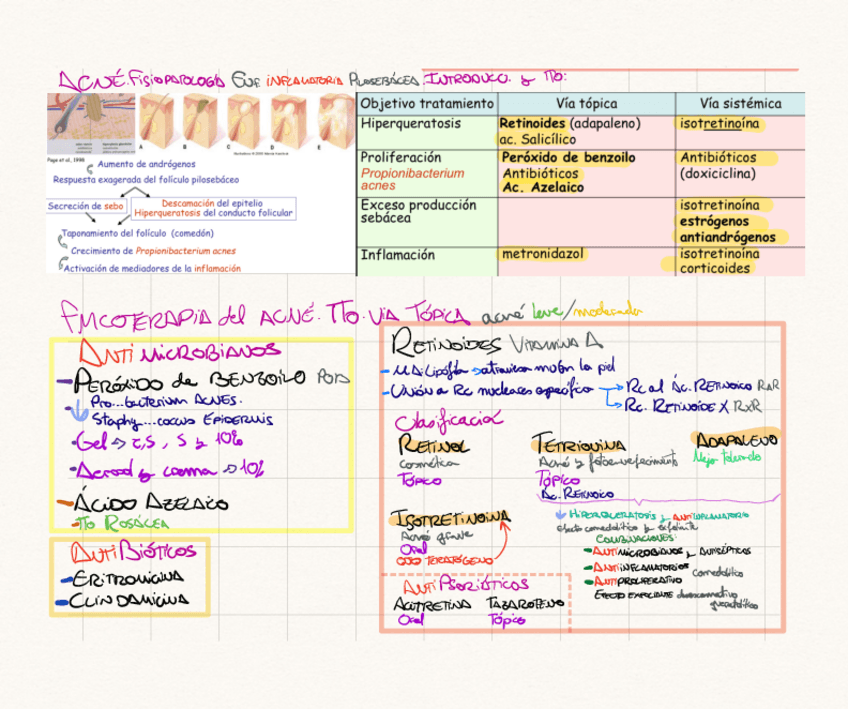 ACNÉ. FISIOPATOLOGÍA ENF. INFLAMATORIA PILOSEBÁCEA. INTRODUCC. y TTO:
A B C D E
Page et al., 1996
Aumento de andrógenos
Respuesta exagerada del folículo pilosebáceo
Secreción de sebo
Descamación del epitelio
Hiperqueratosis del conducto folicular
Taponamiento del folículo (comedón)
Crecimiento de Propionibacterium acnes
Activación de mediadores de la inflamación
Objetivo tratamiento Vía tópica Vía sistémica
Hiperqueratosis Retinoides (adapaleno) isotretinoína
ac. Salicílico
Proliferación Peróxido de benzoilo Antibióticos
Propionibacterium Antibióticos (doxiciclina)
acnes Ac. Azelaico
Exceso producción isotretinoína
sebácea estrógenos
antiandrógenos
Inflamación metronidazol isotretinoína
corticoides
FMCOTERAPIA del ACNÉ. TTO. VÍA TÓPICA acné leve/moderado
ANTIMICROBIANOS
- PERÓXIDO de BENZOILO
Pro...bacterium ACNES.
Staphy...coccus EPIDERMIS
- Gel → 2,5, 5 y 10%
- Aerosol y crema → 10%
- ÁCIDO AZELAICO
- TTO ROSÁCEA
ANTIBIÓTICOS
- ERITROMICINA
- CLINDAMICINA
RETINOIDES VITAMINA A
- Liposolia → atraviesan muy bien la piel
- Unión a Rc nucleares específico → Rc al Ác. RETINOICO RAR
→ Rc. RETINOIDE X RXR
Clasificación
RETINOL
Cosmética
TÓPICO
TETRIQUINA
Acné y fotoenvejecimiento
TÓPICO
Ác. RETINOICO
ADAPALENO
Mejor tolerado
ISOTRETINOINA
Acné grave
Oral
TERATÓGENO
↓ HIPERQUERATOSIS y ANTIINFLAMATORIO
Efecto comedolítico y exfoliante
COMBINACIONES:
- ANTIMICROBIANOS y ANTISÉPTICOS
- ANTIINFLAMATORIOS Comedolítico
- ANTIPROLIFERATIVO
EFECTO EXFOLIANTE
ANTIPSORIÁTICOS
ACITRETINA TAZAROTENO
Oral Tópico